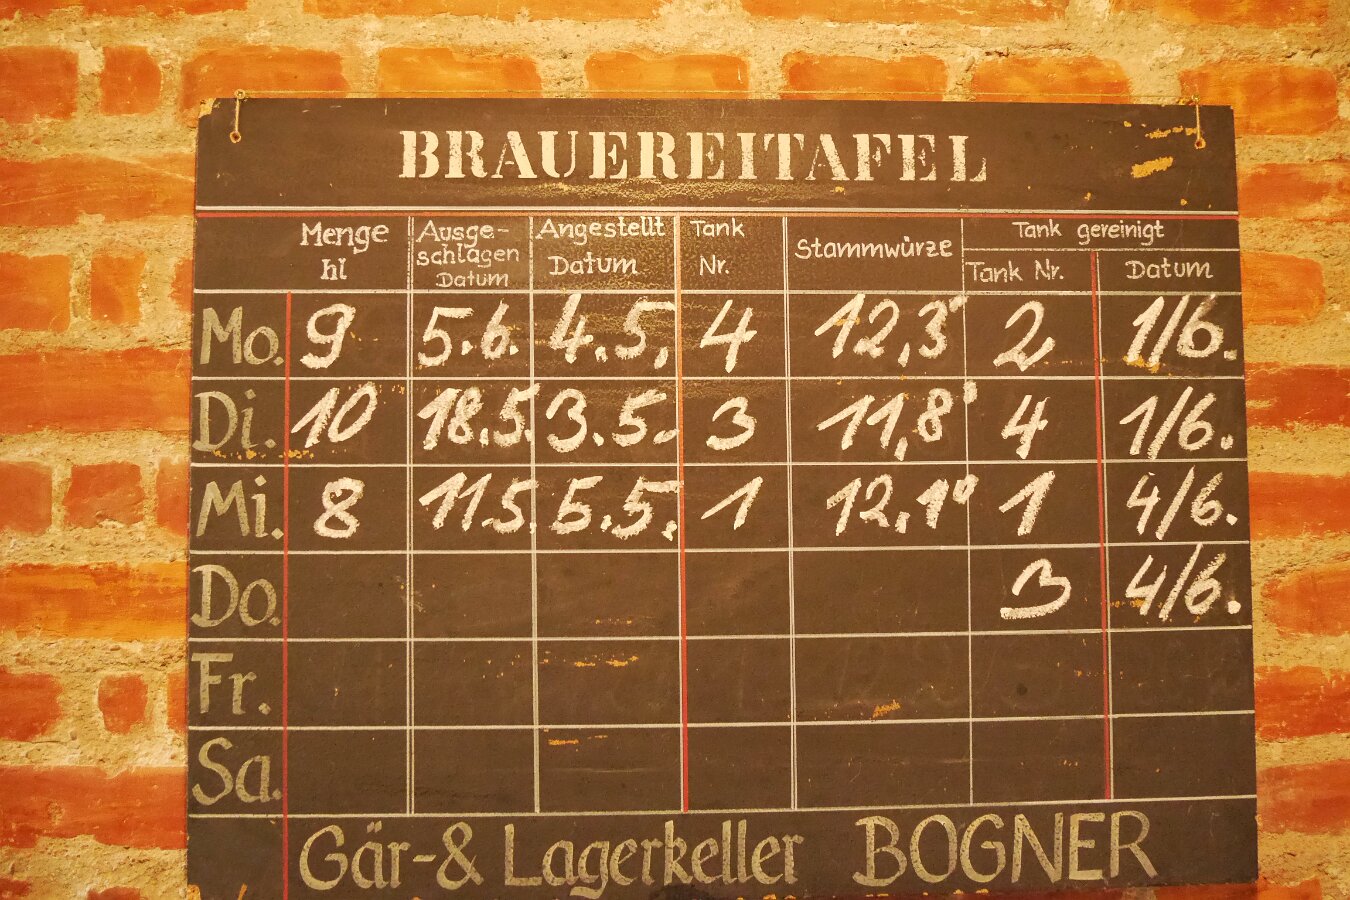 BRAUEREITAFEL
Menge hl Ausge-schlagen Datum Angestellt Datum Tank Nr. Stammwürze Tank gereinigt Tank Nr. Datum
Mo. 9 5.6. 4.5. 4 12,3° 2 1/6.
Di. 10 18.5. 3.5. 3 11,8° 4 1/6.
Mi. 8 11.5. 5.5. 1 12,1° 1 4/6.
Do. 3 4/6.
Fr.
Sa.
Gär-& Lagerkeller BOGNER